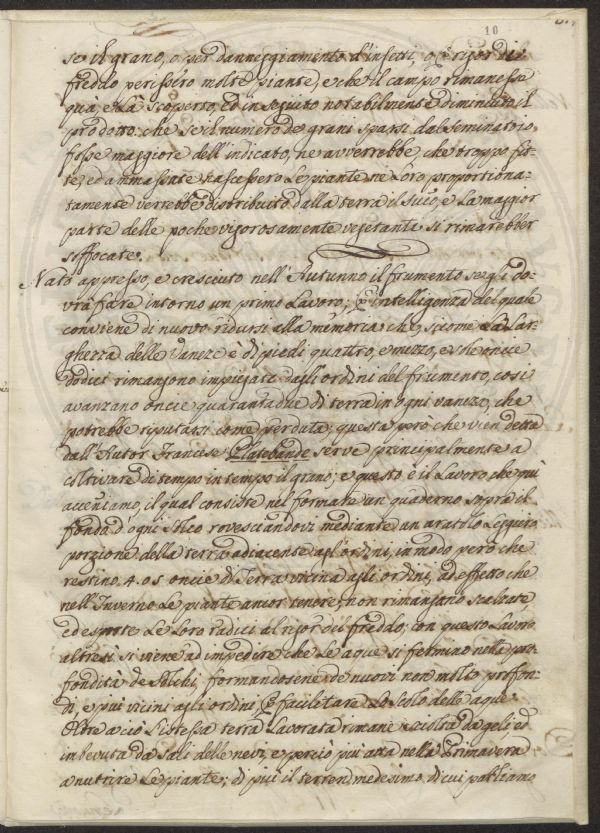 10
se il grano, o per danneggiamento d'insetti, o p rigor di
freddo perissero molte piante, e che il campo rimanesse
qua, e là scoperto, ed in seguito notabilmente diminuito il
prodotto: che se il numero de grani sparsi dal Seminatoio
fosse maggiore dell'indicato, ne avverrebbe, che troppo fit-
te, ed ammassate nascessero le piante, ne loro proportiona-
tamente verrebbe distribuito dalla terra il suco, e la maggior
parte delle poche vigorosamente vegetanti si rimarebber
soffocate.
Nato appresso, e cresciuto nell'Autunno il frumento se gli do-
vrà fare intorno un primo Lavoro; p intelligenza del quale
conviene di nuovo ridursi alla memoria che, siccome la Lar-
ghezza delle Vaneze è di piedi quattro, e mezzo, e che oncie
dodici rimangono impiegate dagli ordini del frumento, così
avanzano oncie quarantadue di terra in ogni vaneza, che
potrebbe riputarsi come perduta; questa però che vien detta
dall'Autor Francese Platebande serve principalmente a
coltivare di tempo in tempo il grano; e questo è il Lavoro che quì
accenniamo, il qual consiste nel formare un quaderno sopra il
fondo d'ogni Solco rovesciandovi mediante un aratolo Leggiero
porzione della terra adiacente agl'ordini, in modo però che
restino 4. o 5 oncie di Terra vicina agli ordini, ad effetto che
nell'Inverno le piante ancor tenere, non rimangano scalzate,
ed esposte le loro radici al rigor dei freddo; con questo Lavoro
altresì si viene ad impedire che le aque si fermino nella pro-
fondità de Solchi, formandosene de nuovi non molto profon-
di, e più vicini agli ordini p facilitare lo Scolo delle aque.
Oltre a ciò l'istessa terra Lavorata rimane sciolta da geli ed
imbevuta da Sali delle nevi, e perciò più atta nella Primavera
a nutrire le piante; di più il terren medesimo di cui parliamo